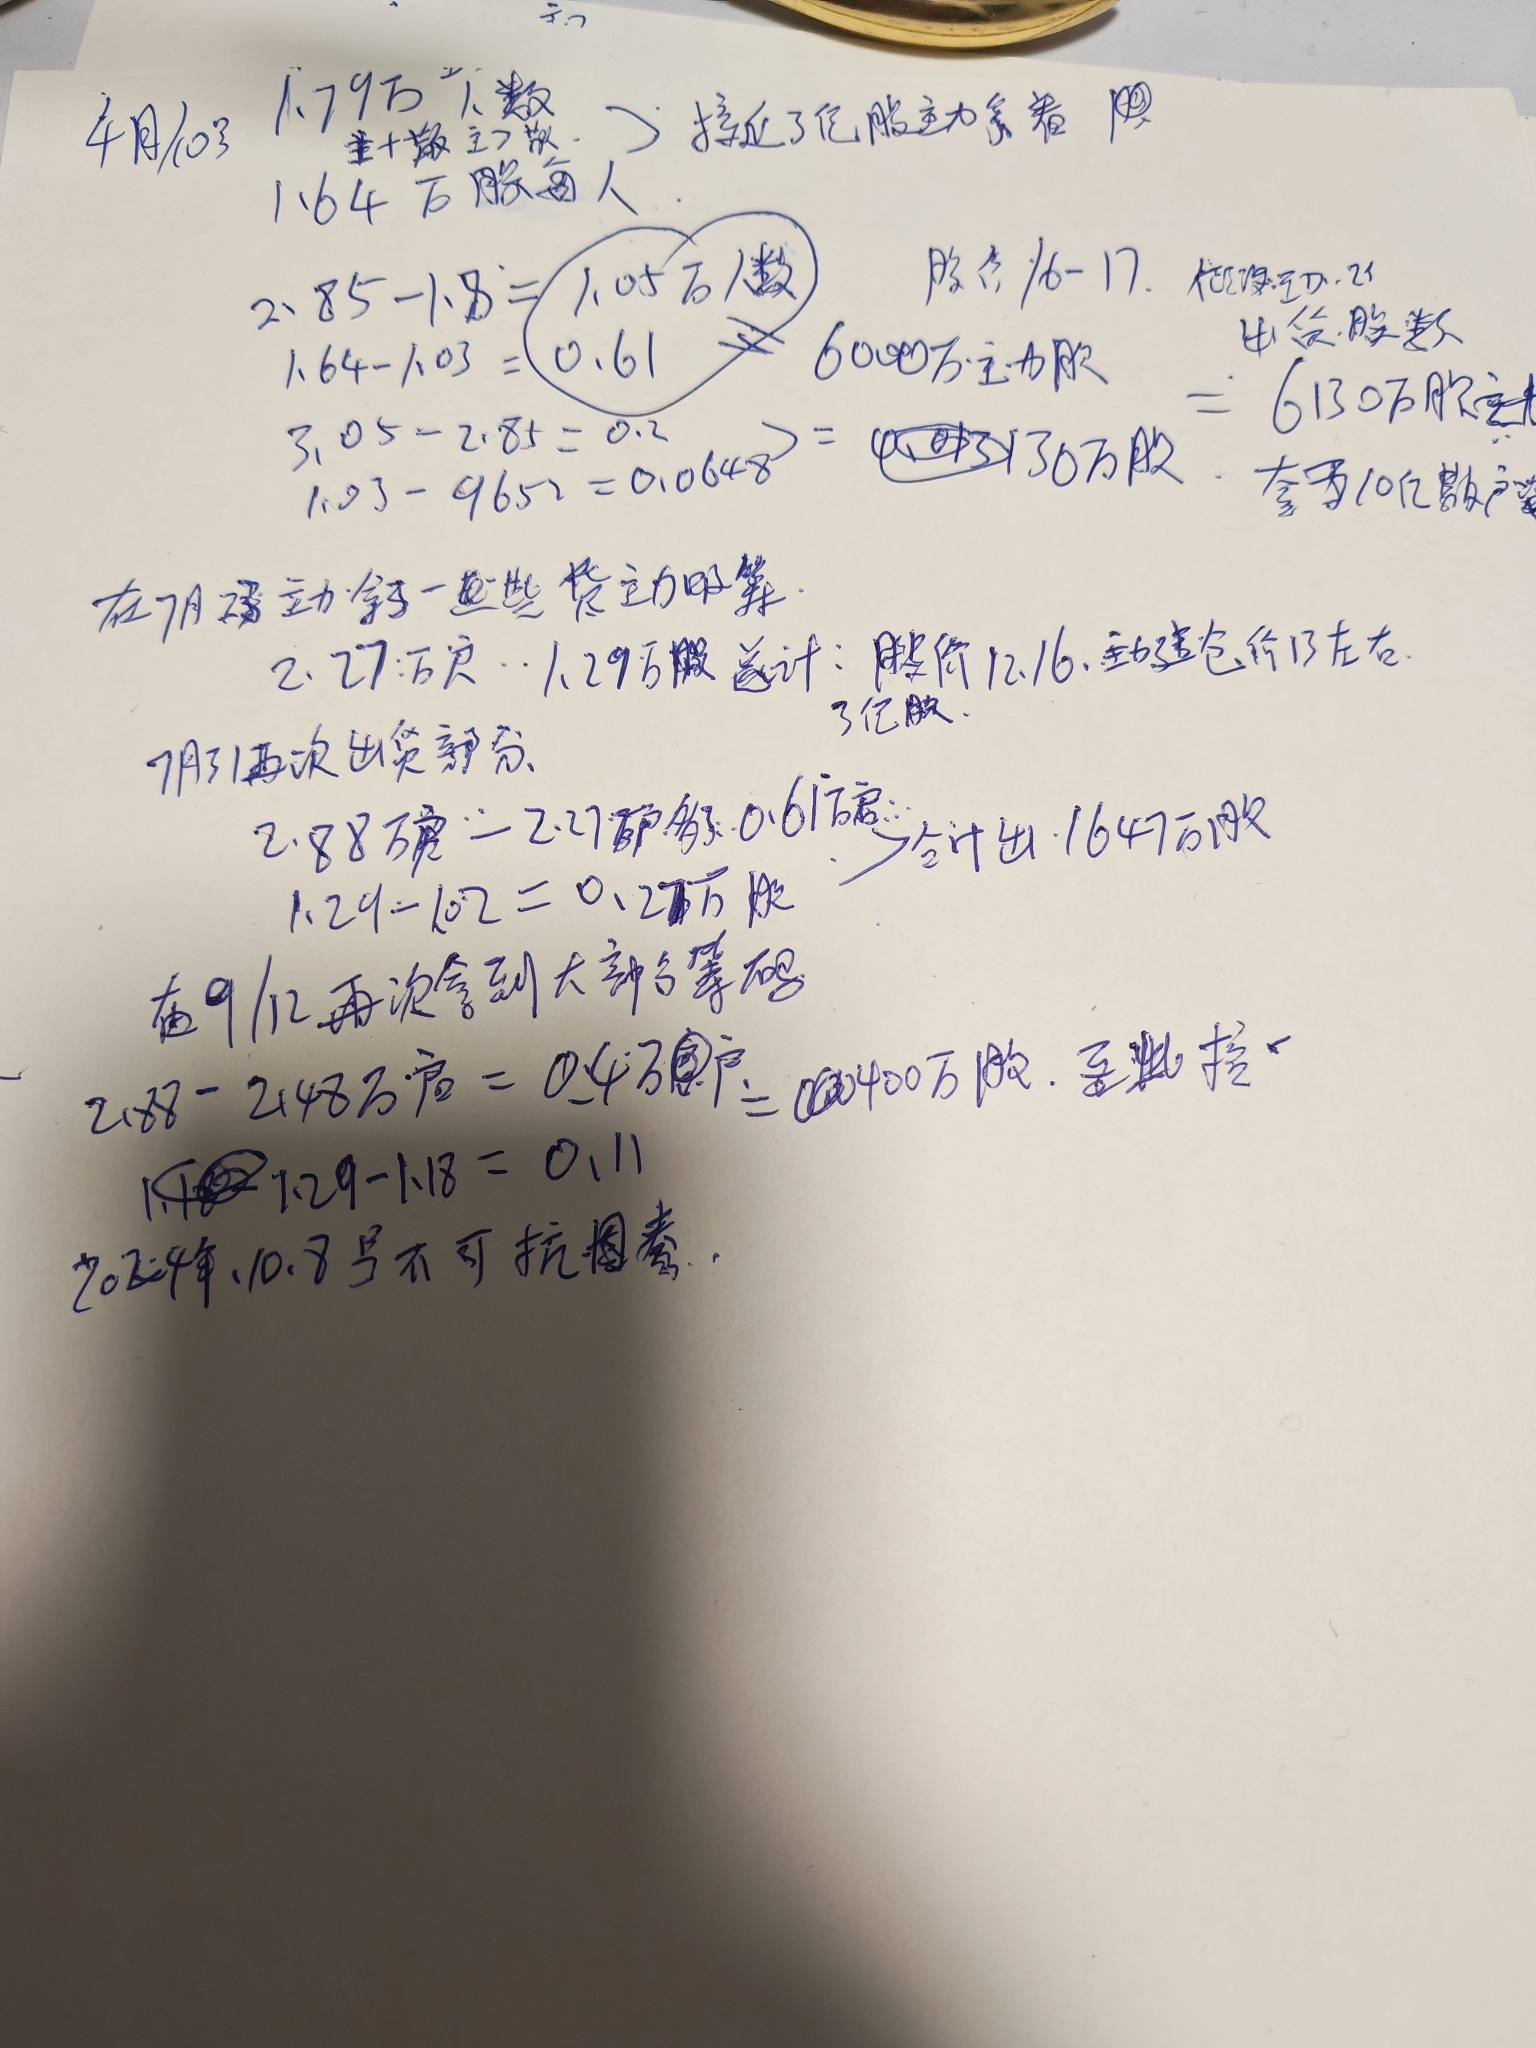 4月/03 1.79万人数
主+散 主>散. 接近3亿股主力拿着
1.64万股每人.
2.85-1.8=1.05万人数 股价16-17.
1.64-1.03=0.61 6000万主力股 出货股数
3.05-2.85=0.2
1.03-9652=0.0648 = 130万股. = 6130万股
在7月 主力拿了一些货主力吸筹.
2.27万户..1.29万股 总计: 股价12.16.主力建仓价13左右.
3亿股.
7月31再次出货部分、
2.88万户-2.27万户多了0.61万户 合计出1647万股
1.29-1.02=0.27万股
在9/12再次拿到大部分筹码
2.88-2.48万户=0.4万户=400万股.至此
1.29-1.18=0.11
2024年.10.8号不可抗因素.